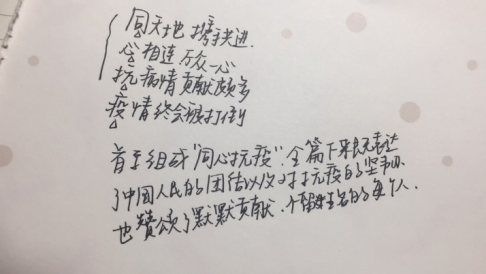 同天地 携手共进.
心相连 万众一心
抗病情 贡献颇多
疫情终会被打倒
首字组成"同心抗疫".全篇下来既表达
了中国人民的团结以及对抗疫的坚
也赞颂了默默贡献.不留姓名的每个人.